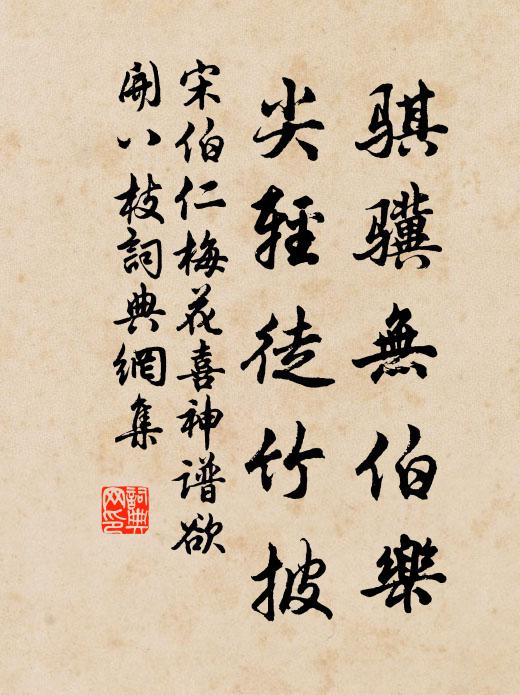 骐驥無伯樂
尖輕徒竹披
宋伯仁梅花喜神譜欲
開八枝詞典網集
詞典网印